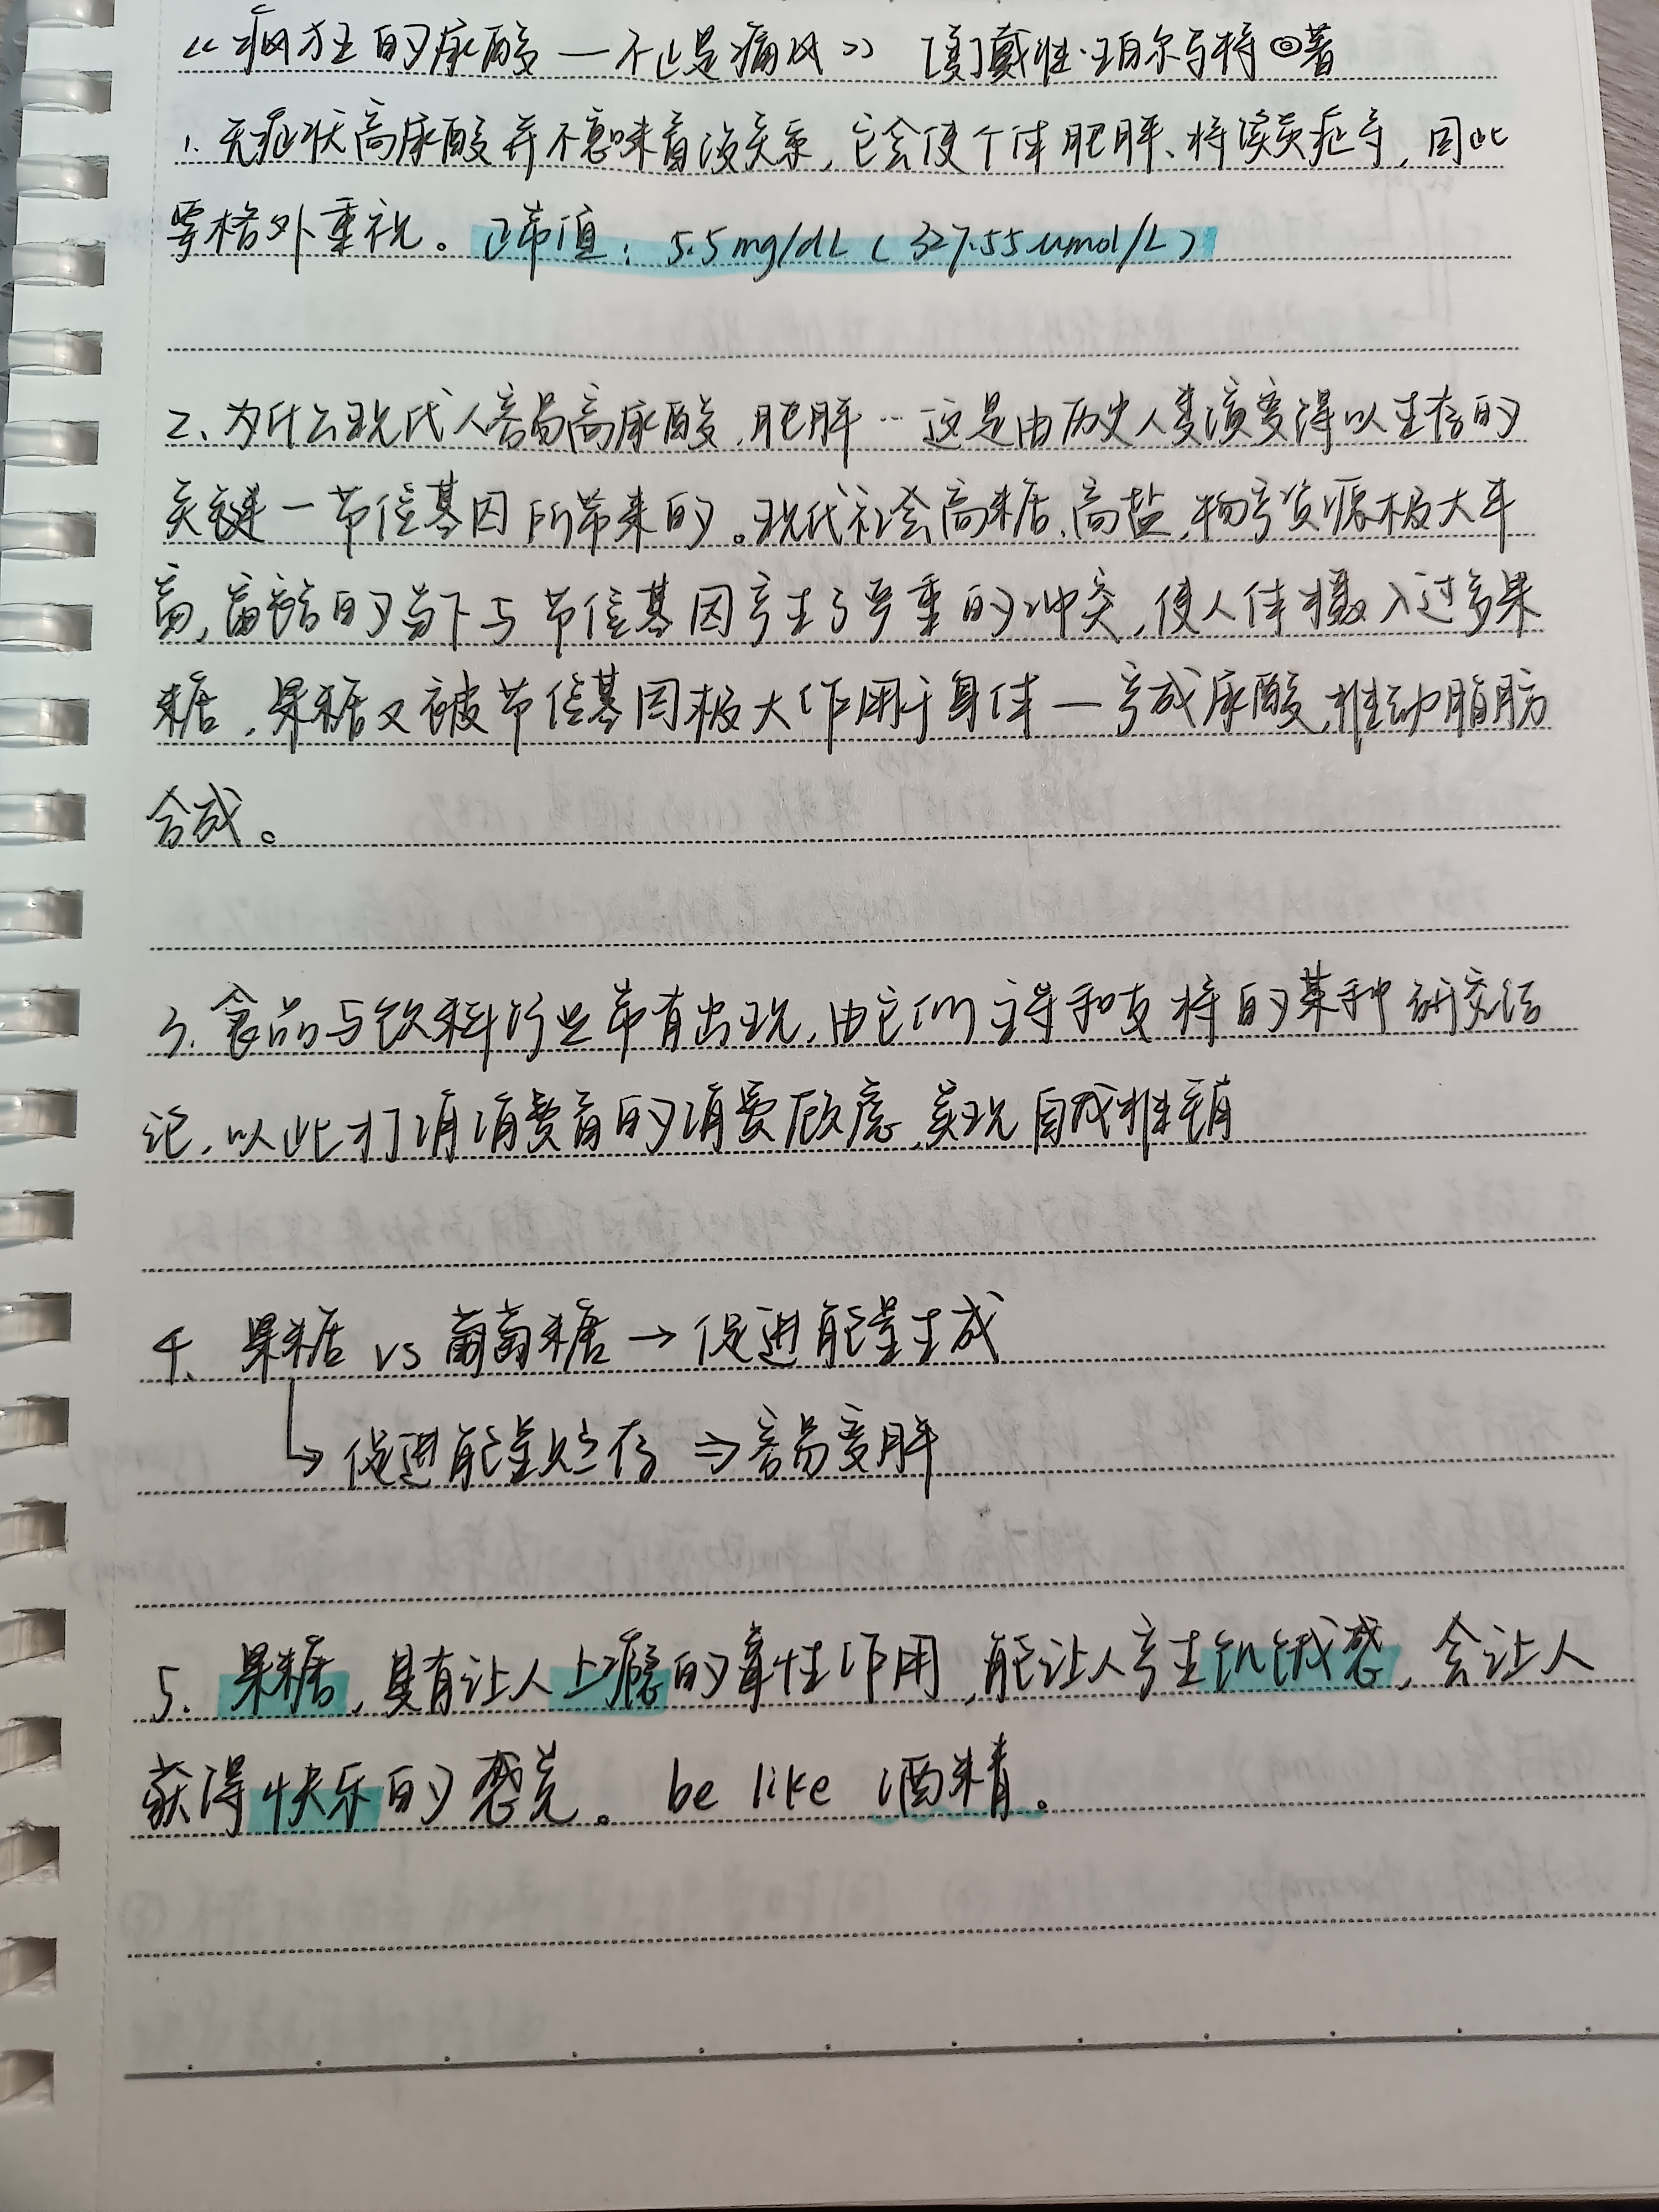 《疯狂的尿酸—不止是痛风》 [美]戴维·珀尔马特◎著
1. 无症状高尿酸并不意味着没关系,它会使个体肥胖、持续炎症等,因此
要格外重视。正常值:5.5mg/dL(327.55umol/L)
2、为什么现代人容易高尿酸、肥胖…这是由历史人类演变得以生存的
关键—节俭基因所带来的。现代社会高糖、高盐,物产资源极大丰
富,富裕的当下与节俭基因产生了严重的冲突,使人体摄入过多果
糖,果糖又被节俭基因极大作用于身体—变成尿酸,推动脂肪
合成。
3. 食品与饮料行业常有出现,由它们主导和支持的某种研究结
论,以此打消消费者的消费顾虑,实现自我推销
4、果糖 vs 葡萄糖→促进能量生成
↳促进能量贮存 ⇒容易变胖
5. 果糖,具有让人上瘾的毒性作用,能让人产生饥饿感,会让人
获得快乐的感觉。be like 酒精。